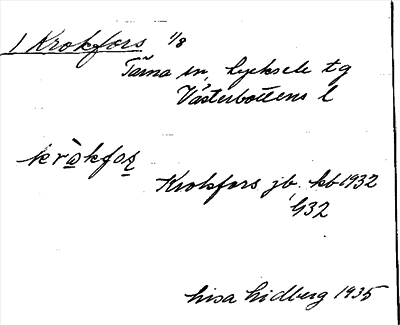 1 Krokfors 1/8
Tärna sn, Lycksele tg
Västerbottens l
kràkfoṣ
Krokfors jb. kb 1932
G32
Lisa Lidberg 1935